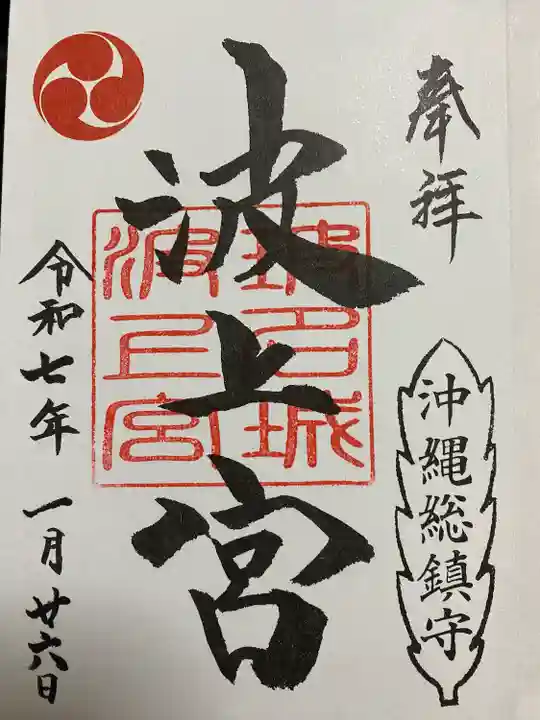 奉拝
沖縄総鎮守
波上宮
球陽名城
波上宮
令和七年 一月廿六日